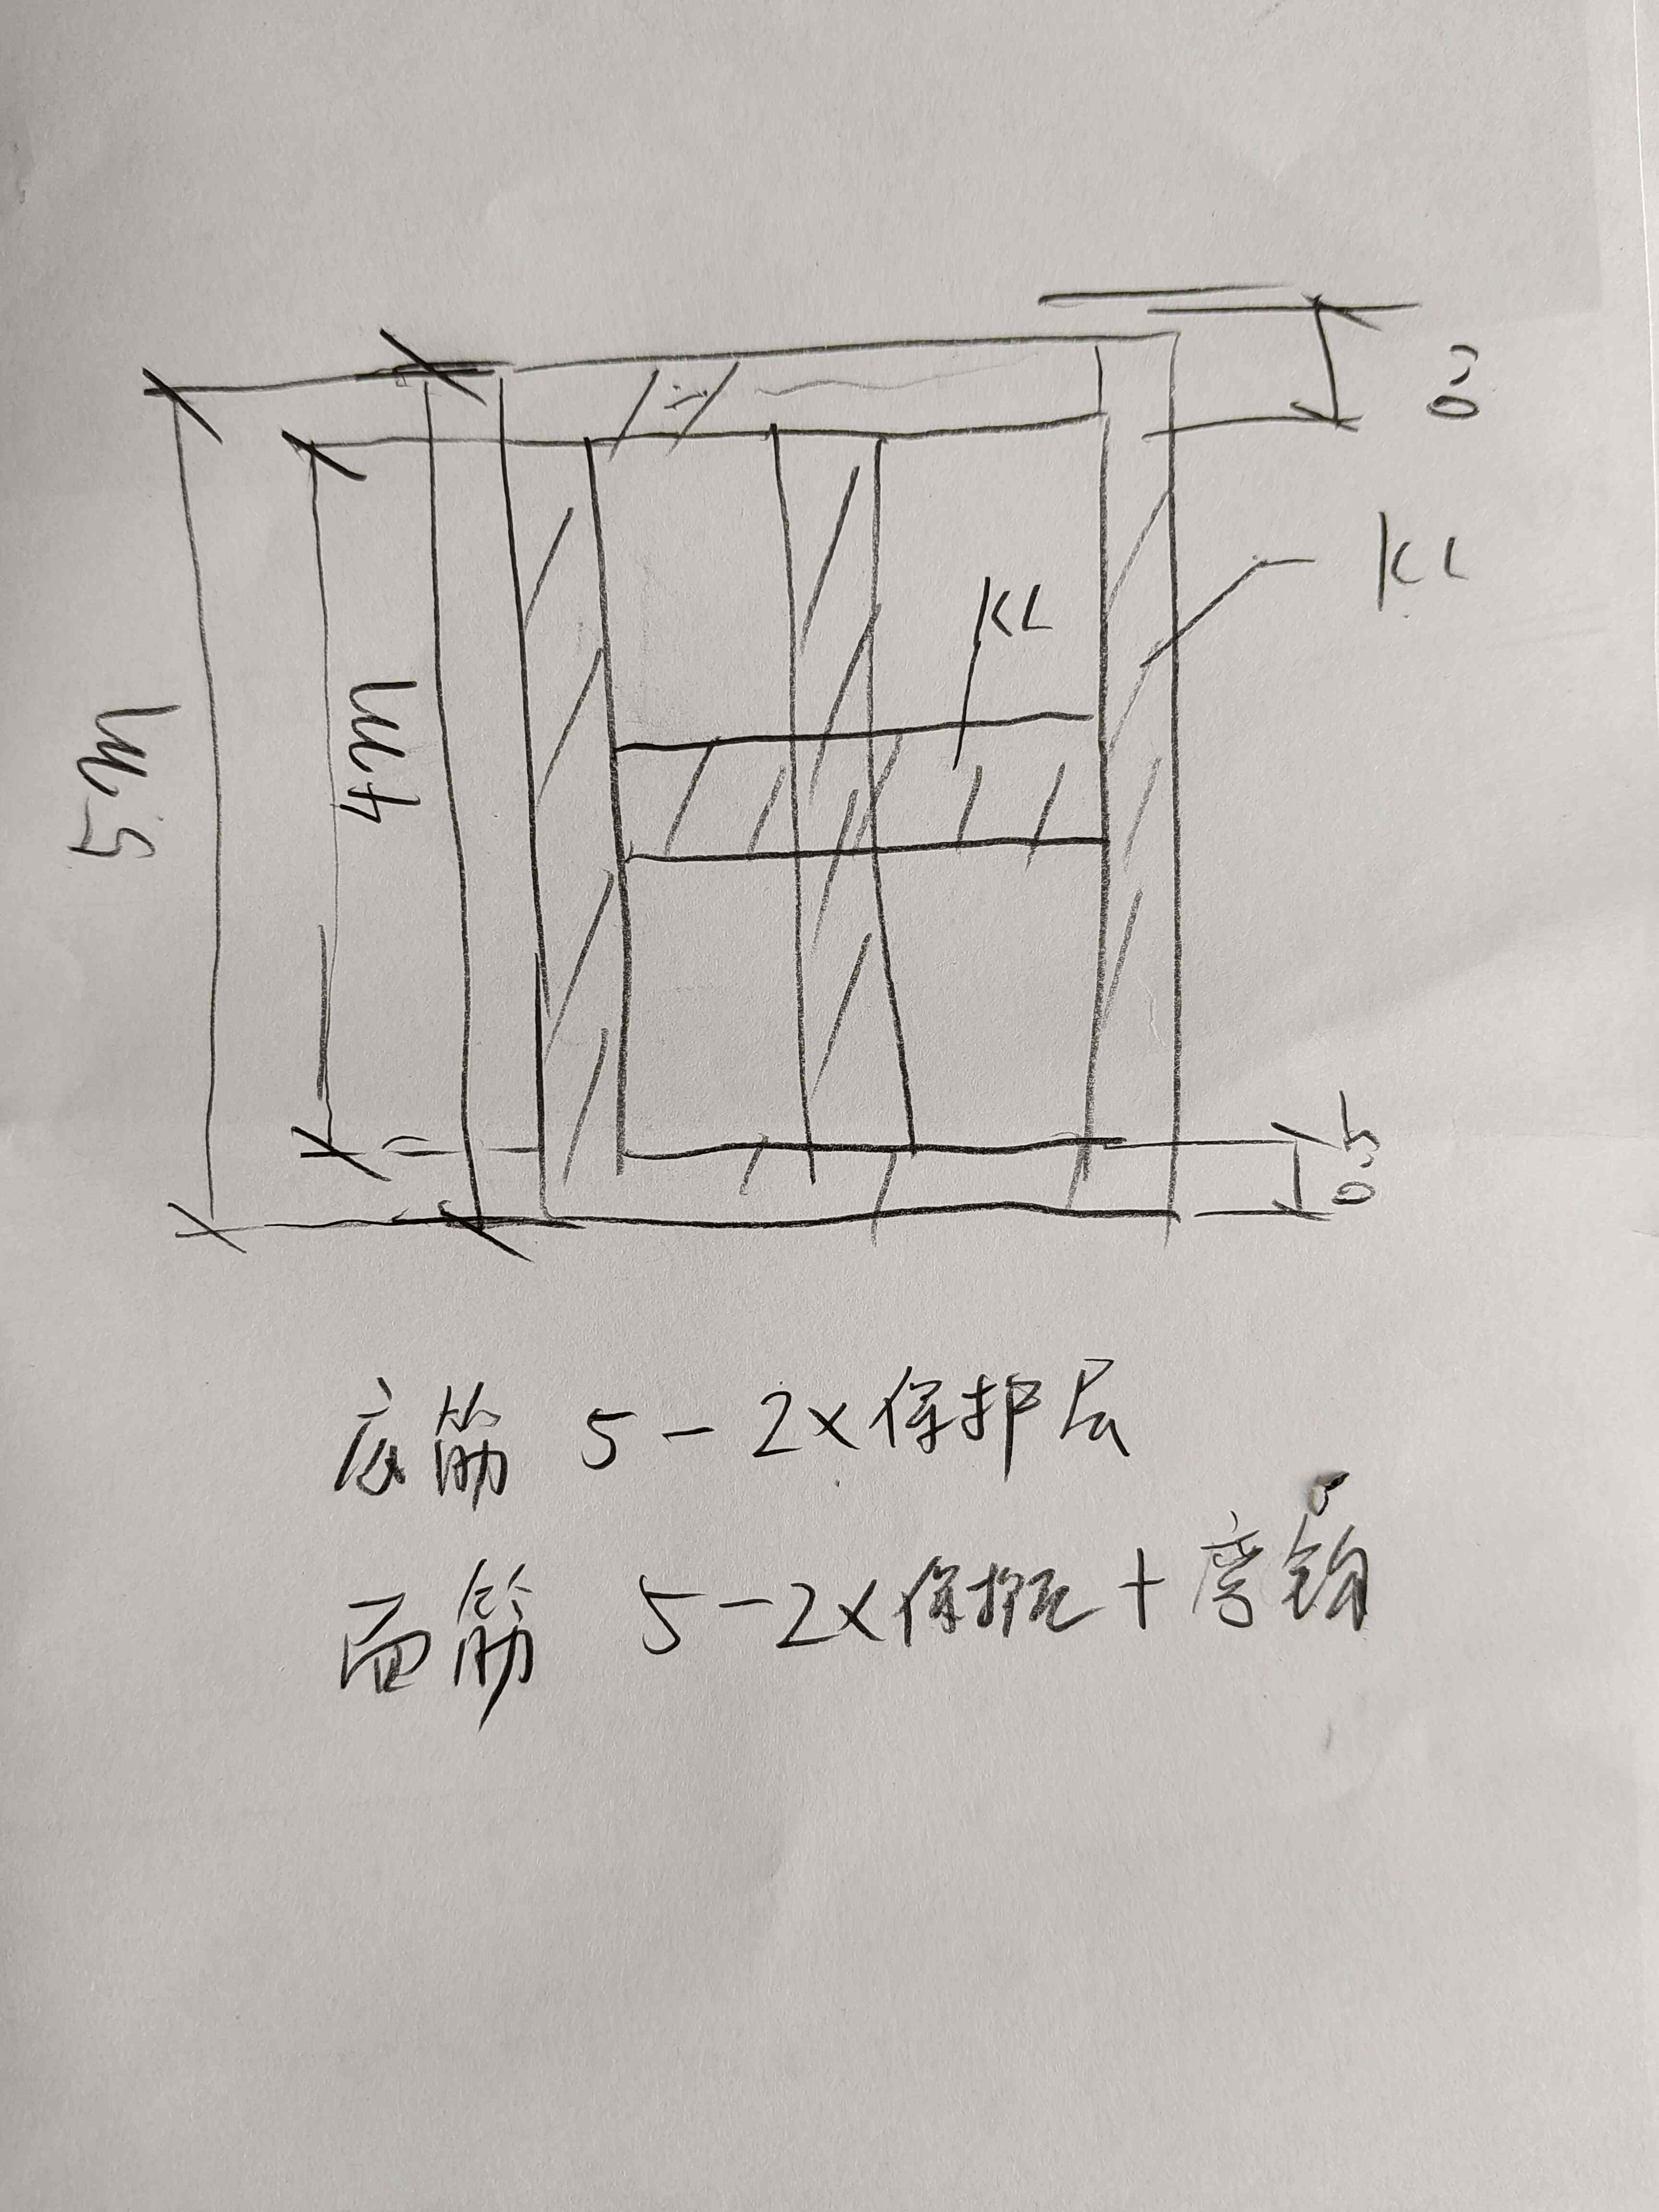 KL
KL
5m
4m
0.5
底筋 5-2x保护层
面筋 5-2x保护层+弯钩